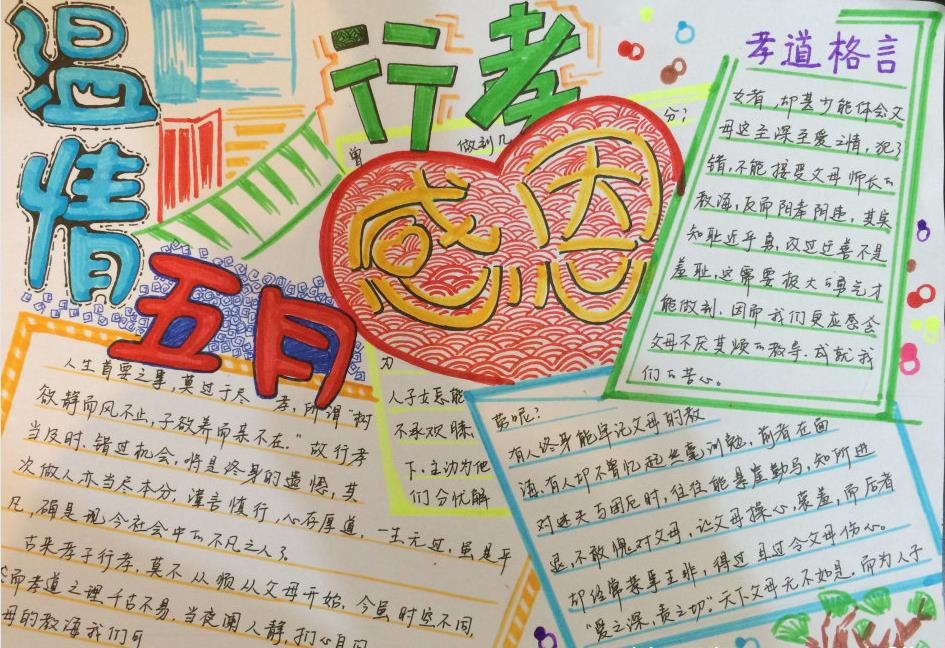 温情
五月
行孝
感恩
孝道格言
女者,却甚少能体会父
母这至深至爱之情,犯了
错,不能接受父母师长的
教海,反而阳孝阴违,其实
知耻近乎勇,改过迁善不是
羞耻,这需要极大的勇气才
能做到,因而我们更应感会
父母不厌其烦的教导,成就我
们的苦心。
曾
做到几
分?
为
人子女怎能
不承欢膝
下,主动为他
们分忧解
人生首要之事,莫过于尽
孝,所谓"树
欲静而风不止,子欲养而亲不在."故行孝
当及时,错过机会,将是终身的遗憾,其
次做人亦当尽本分,谨言慎行,心存厚道,一生无过,虽是平
凡,确是现今社会中的不凡之人了
古来孝子行孝,莫不从顺从父母开始,今虽时空不同,
而孝道之理千古不易,当夜阑人静,扪心自问
母的教海我们可
劳呢?
有人终身能牢记父母的教
海,有人却不曾忆起丝毫训勉,前者在面
对迷失与困厄时,往往能悬崖勒马,知所进
退,不敢愧对父母,让父母操心,蒙羞,而后者
却经常惹事生非,得过且过令父母伤心。
"爱之深,责之切."天下父母无不如是,而为人子